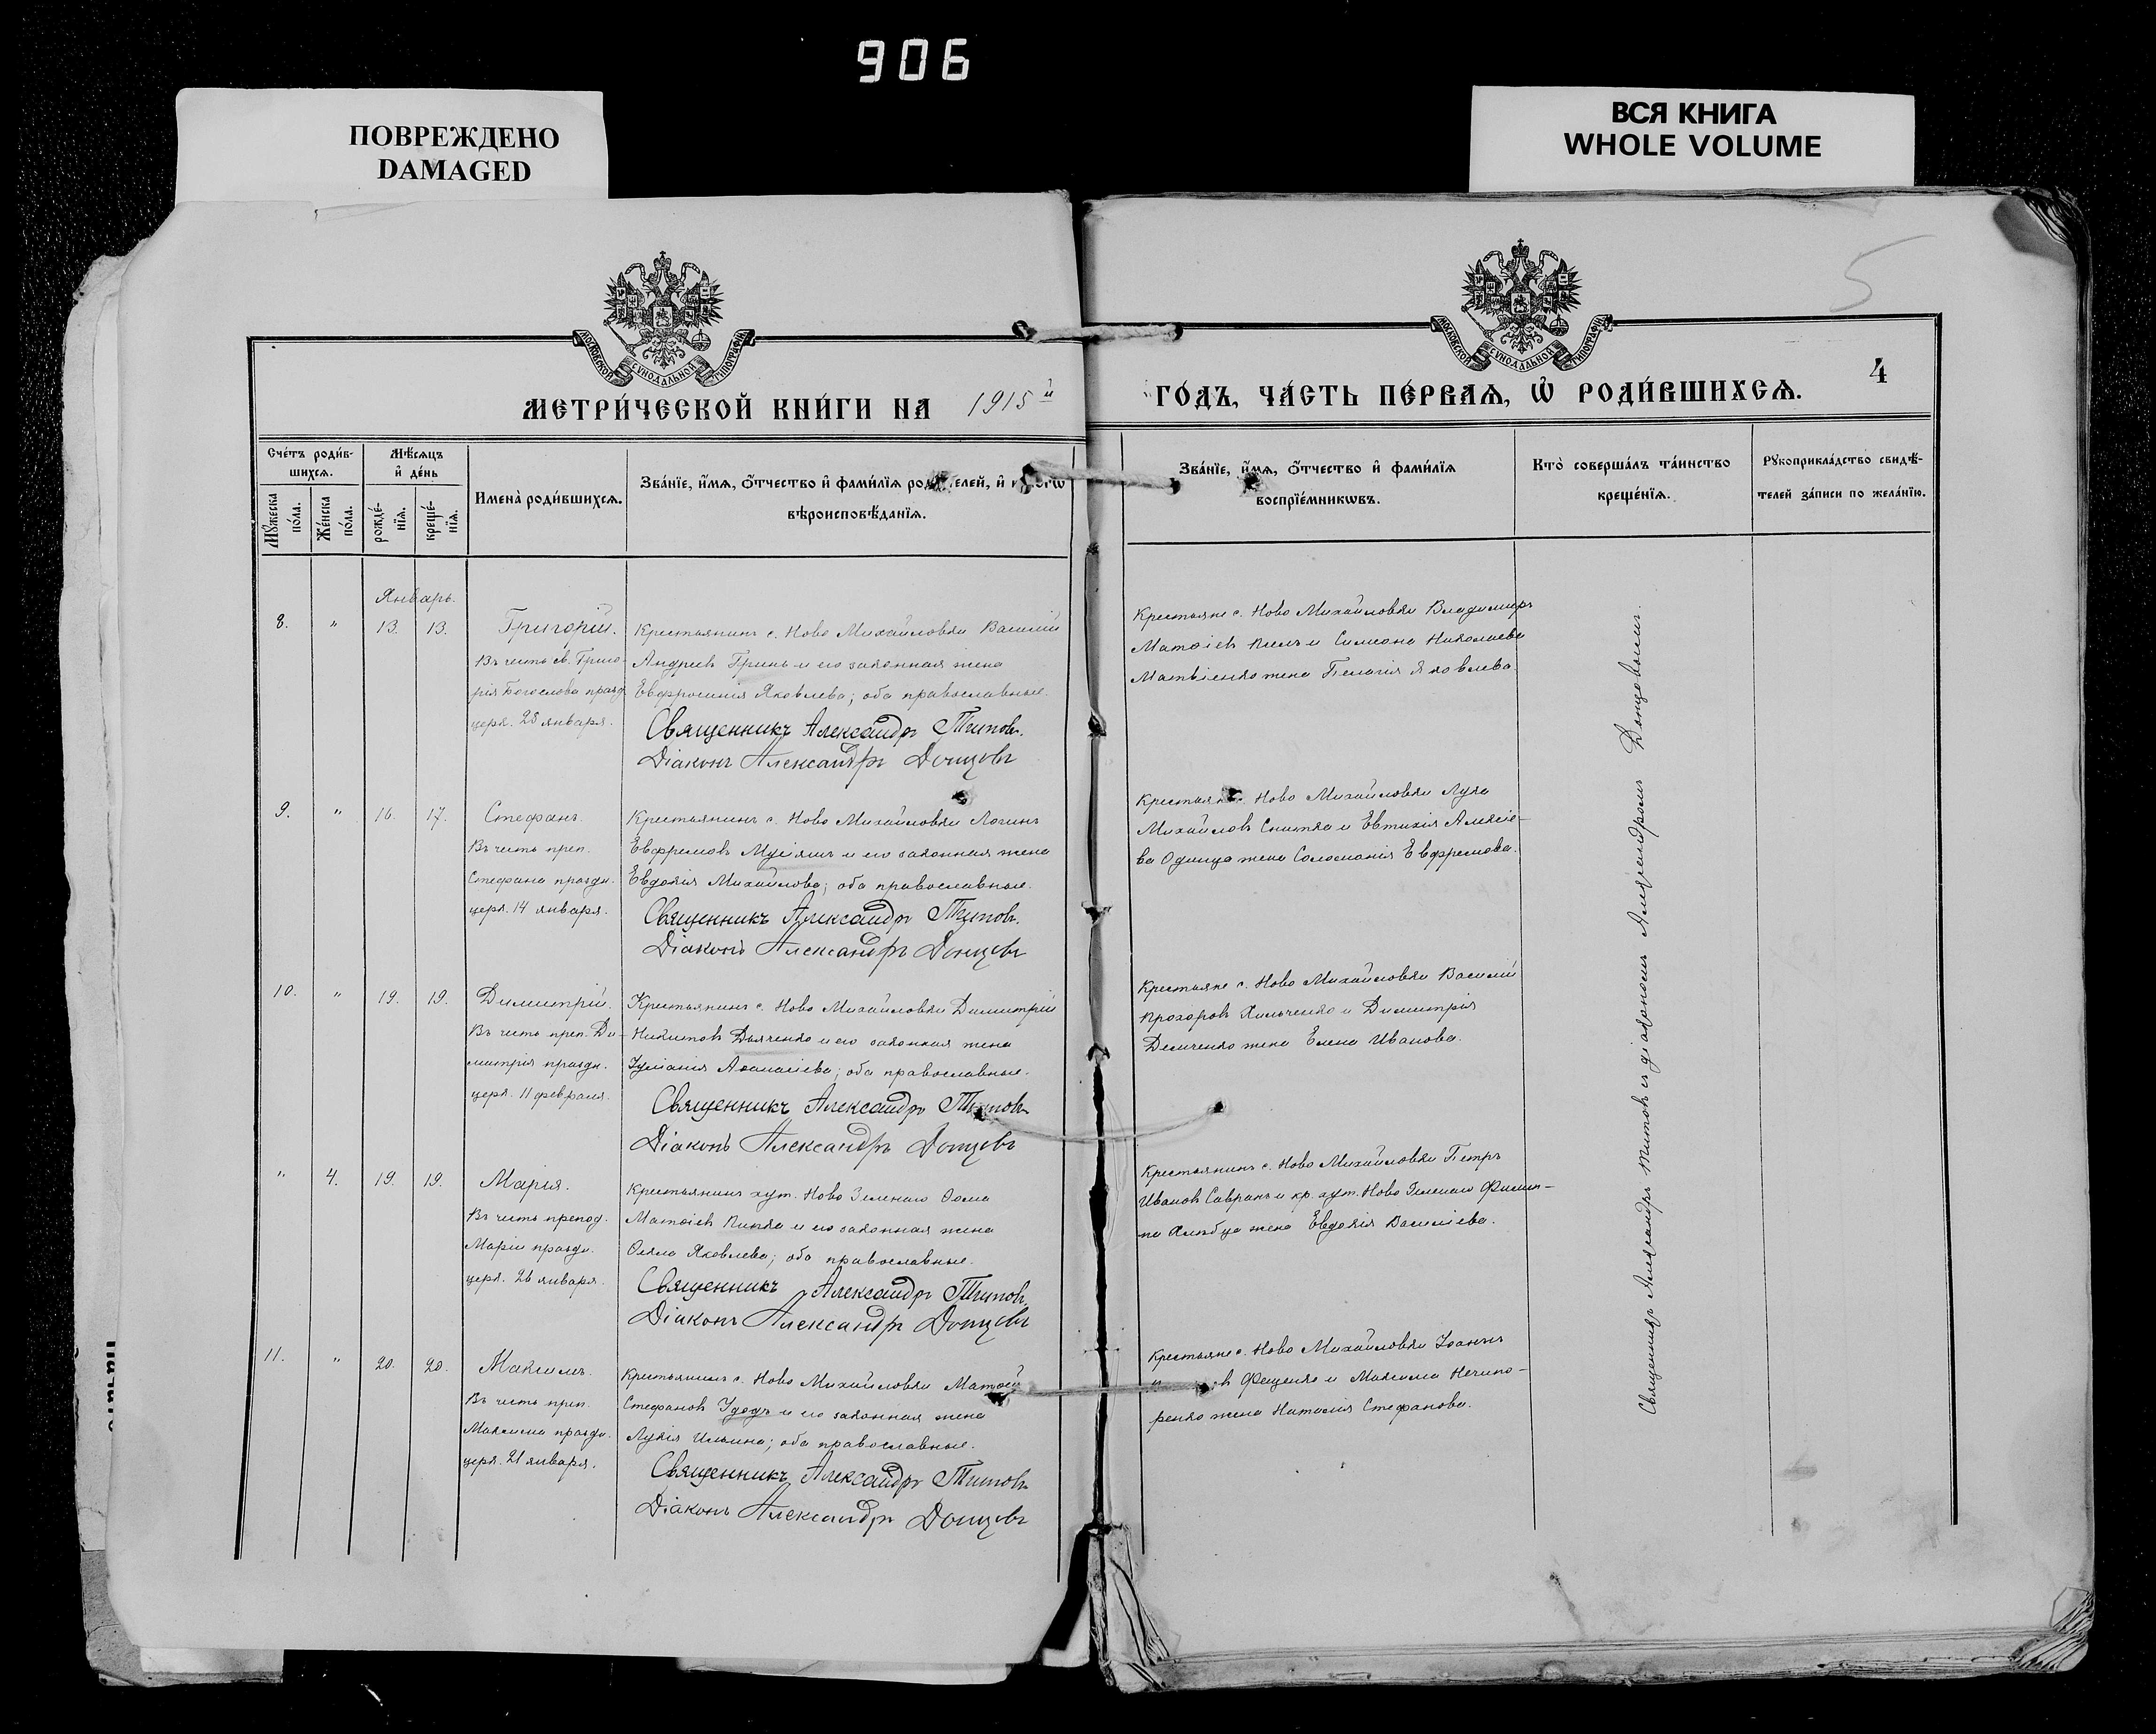 906
ПОВРЕЖДЕНО
DAMAGED
ВСЯ КНИГА
WHOLE VOLUME
5
МОСКОВСКОЙ СѴНОДАЛЬНОЙ ТИПОГРАФІИ
МОСКОВСКОЙ СѴНОДАЛЬНОЙ ТИПОГРАФІИ
МЕТРИ́ЧЕСКОЙ КНИ́ГИ НА 1915й
ГО́ДЪ, ЧА́СТЬ ПЕ́РВАѦ, Ѡ҆ РОДИ́ВШИХСѦ.
4
Сче́тъ роди́в-
шихсѧ.
Мꙋ́жеска
по́ла.
Же́нска
по́ла.
Мѣ́сѧцъ
и҆ де́нь
рожде́-
нїѧ.
креще́-
нїѧ.
Имена̀ роди́вшихсѧ.
Зва́нїе, и҆́мѧ, ѻ҆́тчество и҆ фами́лїѧ родителей, и҆
вѣроисповѣ́данїѧ.
Зва́нїе, и҆́мѧ, ѻ҆́тчество и҆ фами́лїѧ
воспрїе́мникѡвъ.
Кто̀ соверша́лъ та́инство
креще́нїѧ.
Рꙋкоприкла́дство свидѣ́-
телей за́писи по жела́нїю.
Январь.
8. " 13. 13. Григорій.
Въ честь св. Григо-
рія Богослова празд.
церк. 25 января.
Крестьянинъ с. Ново Михайловки Василій
Андреевъ Гринь и его законная жена
Евфросинія Яковлева; оба православные.
Священникъ Александръ Титовъ.
Діаконъ Александръ Донцовъ
Крестьяне с. Ново Михайловки Владимиръ
Матѳіевъ и Симеона Николаева
Матвіенко жена Пелагія Яковлева.
9. " 16. 17. Стефанъ.
Въ честь преп.
Стефана праздн.
церк. 14 января.
Крестьянинъ с. Ново Михайловки Логинъ
Евфремовъ и его законная жена
Евдокія Михайлова; оба православные.
Священникъ Александръ Титовъ.
Діаконъ Александръ Донцовъ
Крестьяне с. Ново Михайловки Лука
Михайловъ Снитка и Евтихія Алексіе-
ва Одинца жена Соломонія Евфремова.
10. " 19. 19. Димитрій.
Въ честь преп. Ди-
митрія праздн.
церк. 11 февраля.
Крестьянинъ с. Ново Михайловки Димитрій
Никитовъ Дьяченко и его законная жена
Іуліанія Аѳанасіева; оба православные.
Священникъ Александръ Титовъ
Діаконъ Александръ Донцовъ
Крестьяне с. Ново Михайловки Василій
Прохоровъ Хильченко и Димитрія
Демченко жена Елена Иванова.
" 4. 19. 19. Марія.
Въ честь препод.
Маріи праздн.
церк. 26 января.
Крестьянинъ хут. Ново Зеленаго Ѳома
Матѳіевъ и его законная жена
Ѳекла Яковлева; оба православные.
Священникъ Александръ Титовъ
Діаконъ Александръ Донцовъ
Крестьянинъ с. Ново Михайловки Петръ
Ивановъ Савранъ и кр. хут. Ново Зеленаго Филип-
па жена Евдокія Василіева.
11. " 20. 20. Максимъ.
Въ честь преп.
Максима праздн.
церк. 21 января.
Крестьянинъ с. Ново Михайловки Матѳей
Стефановъ Удодъ и его законная жена
Лукія Ильина; оба православные.
Священникъ Александръ Титовъ
Діаконъ Александръ Донцовъ
Крестьяне с. Ново Михайловки Іоаннъ
Фещенко и Максима Нечипо-
ренко жена Наталія Стефанова.
Священникъ Александръ Титовъ съ діакономъ Александромъ Донцовымъ.